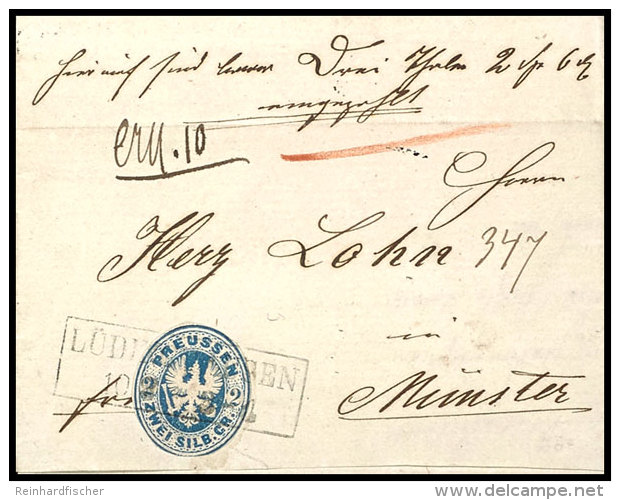 hierauf sind baar Drei Thaler 2 Sgr 6 d
eingezahlt
err. 10
Herrn
Herz Lohn 347
in
LÜDI SEN
10
PREUSSEN
2 2
ZWEI SILB. GR.
Münster
Reinhardfischer
www.delcampe.net